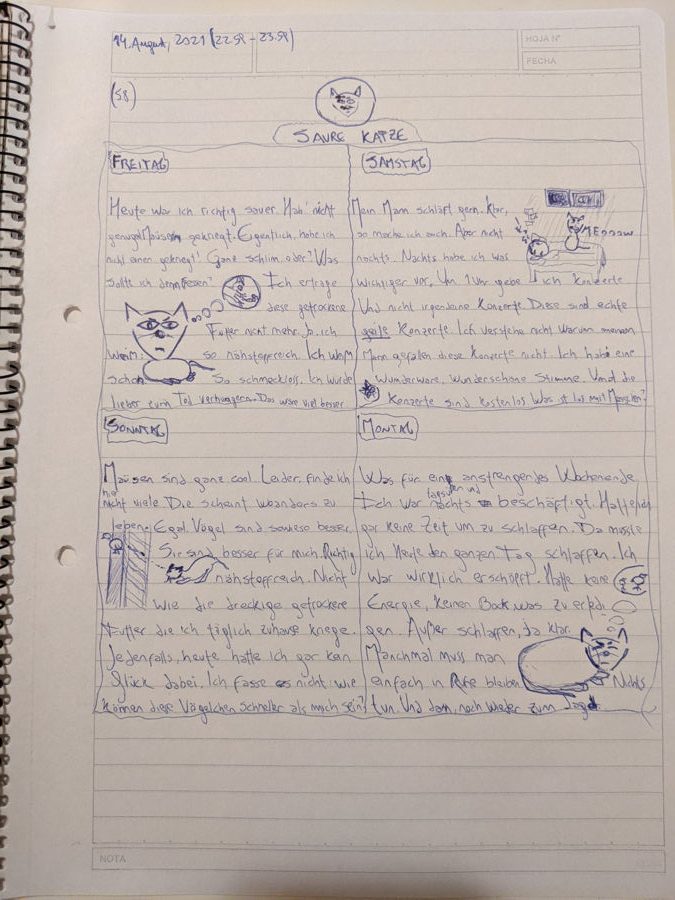 14. August, 2021 (22:58 - 23:58)
HOJA Nº
FECHA
(58)
SAURE KATZE
FREITAG
Heute war ich richtig sauer. Hab' nicht
genug Mäusen gekriegt. Eigentlich, habe ich
nicht einen gekriegt! Ganz schlim, oder? Was
sollte ich denn fressen? Ich ertrage
diese getrockere
Futter nicht mehr. Ja, ich
weiß: so nähstoffreich. Ich weiß
schon. So schmecklos. Ich würde
lieber zum Tod verhungern. Das wäre viel besser
SAMSTAG
Mein Mann schläft gern. Klar,
so mache ich auch. Aber nicht
nachts. Nachts habe ich was
wichtiger vor. Um 1 Uhr gebe ich Konzerte
Und nicht irgendeine Konzerte. Diese sind echte
geile Konzerte. Ich verstehe nicht warum meinen
Mann gefallen diese Konzerte nicht. Ich habe eine
wunderware, wunderschöne Stimme. Und die
Konzerte sind kostenlos. Was ist los mit Menschen?
MEEOOW
SONNTAG
Mäusen sind ganz cool. Leider, finde ich
hier
nicht viele. Die scheint woanders zu
leben. Egal. Vögel sind sowieso besser.
Sie sind besser für mich. Richtig
nähstoffreich. Nicht
wie die dreckige getrockere
Futter die ich täglich zuhause kriege.
Jedenfalls, heute hatte ich gar kein
Glück dabei. Ich fasse es nicht: wie
können diese Vögelchen schneller als mich sein?
MONTAG
Was für ein anstrengendes Wochenende
tagsüber und
Ich war nachts beschäftigt. Hatte
gar keine Zeit um zu schlaffen. Da musste
ich Heute den ganzen Tag schlaffen. Ich
war wirklich erschöpft. Hatte keine
Energie, keinen Bock, was zu erledi-
gen. Außer schlaffen, ja klar.
Manchmal muss man
einfach in Rufe bleiben. Nichts
tun. Und dann, noch wieder zum Jagd
NOTA